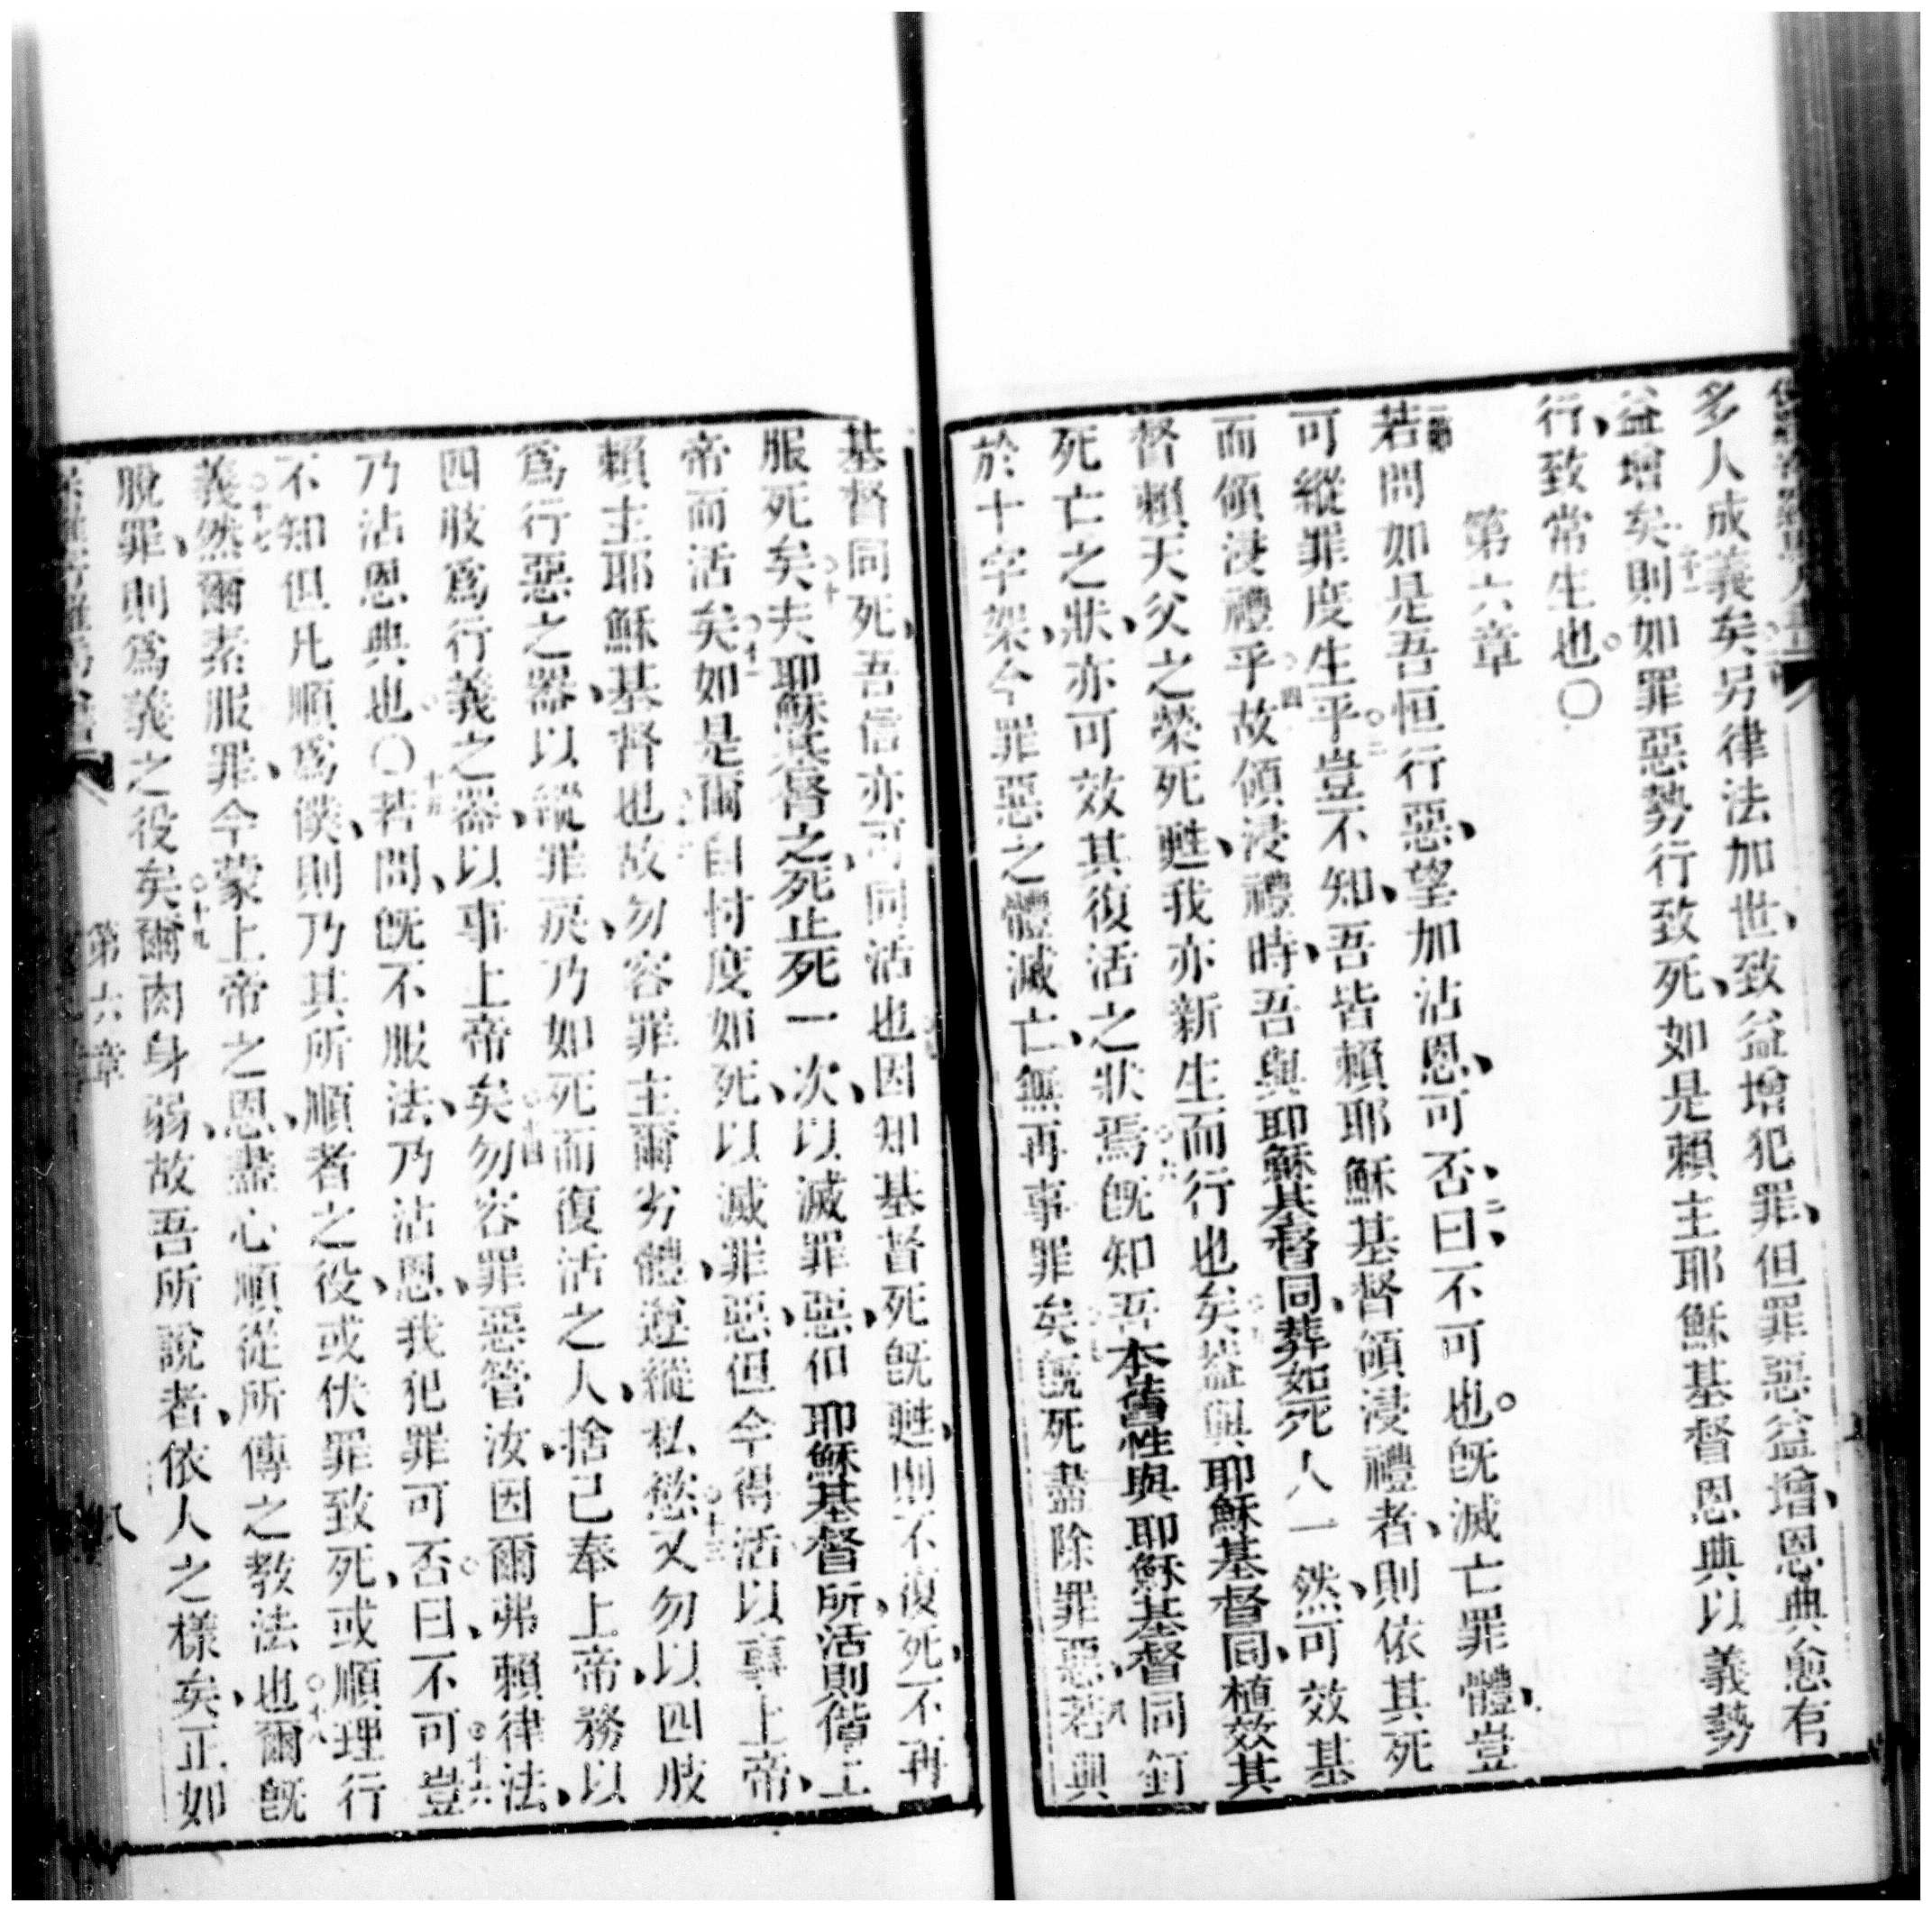 多人成義矣另律法加世、致益增犯罪、但罪惡益增、恩典愈有
益增矣則如罪惡勢行致死、如是賴主耶穌基督恩典以義勢
行、致常生也。〇
第六章
若問如是吾恒行惡、望加沾恩、可否、曰、不可也。旣滅亡罪體、豈
可縱罪度生乎豈不知、吾皆賴耶穌基督領浸禮者、則依其死
而領浸禮乎故領浸禮時、吾與耶穌基督同葬、如死人一然、可效基
督賴天父之榮死甦、我亦新生而行也矣蓋與耶穌基督同植、效其
死亡之狀、亦可效其復活之狀焉旣知吾本舊性與耶穌基督同釘
於十字架、今罪惡之體滅亡、無再事罪矣旣死盡除罪惡、若與
基督同死、吾信亦可同活也因知基督死旣甦、則不復死、不再
服死矣夫耶穌基督之死、止死一次、以滅罪惡、但耶穌基督所活、則偕上
帝而活矣如是爾自忖度如死、以滅罪惡、但今得活以事上帝、
賴主耶穌基督也故勿容罪主爾劣體、遵縱私慾又勿以四肢
爲行惡之器、以縱罪戾、乃如死而復活之人、捨己奉上帝、務以
四肢爲行義之器、以事上帝矣勿容罪惡管汝、因爾弗賴律法、
乃沾恩典也〇若問、旣不服法、乃沾恩、我犯罪可否曰、不可豈
不知但凡順爲僕、則乃其所順者之役、或伏罪致死、或順理行
義然爾素服罪、今蒙上帝之恩、盡心順從所傳之教法也爾旣
脫罪、則爲義之役矣爾肉身弱、故吾所說者、依人之樣矣、正如
第六章
八